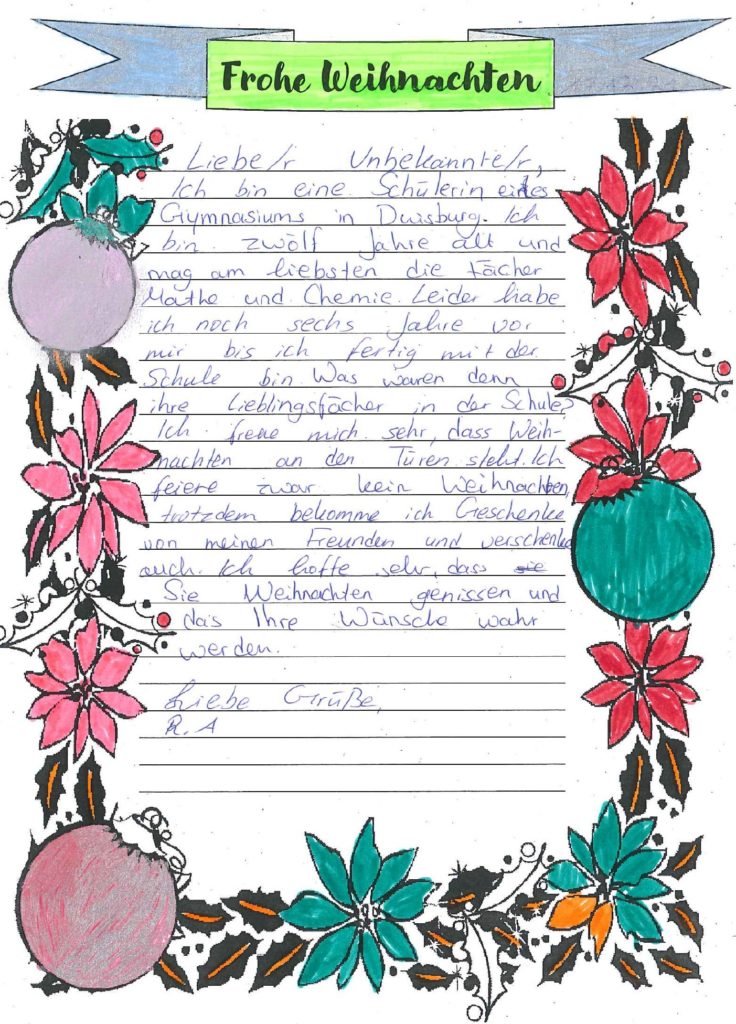 Frohe Weihnachten
Liebe/r Unbekannte/r,
Ich bin eine Schülerin eines
Gymnasiums in Duisburg. Ich
bin zwölf Jahre alt und
mag am liebsten die Fächer
Mathe und Chemie. Leider habe
ich noch sechs Jahre vor
mir bis ich fertig mit der
Schule bin. Was waren denn
ihre Lieblingsfächer in der Schule?
Ich freue mich sehr, dass Weih-
nachten an den Türen steht. Ich
feiere zwar kein Weihnachten,
trotzdem bekomme ich Geschenke
von meinen Freunden und verschenke
auch. Ich hoffe sehr, dass
Sie Weihnachten genissen und
das Ihre Wünsche wahr
werden.
Liebe Grüße,
R. A